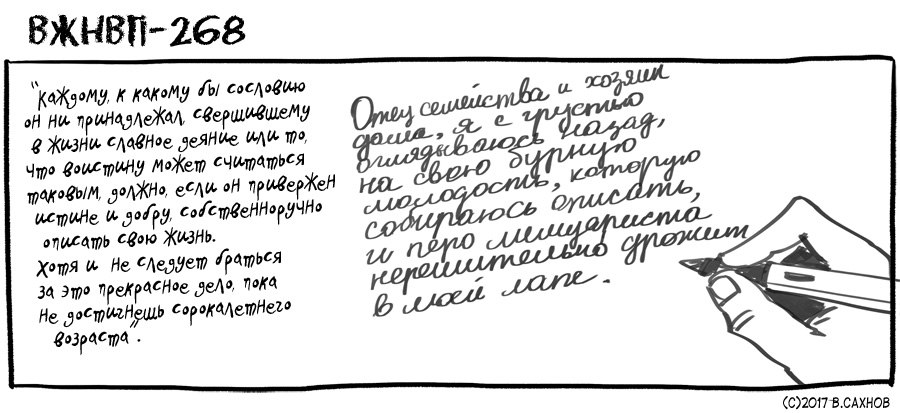 ВЖНВП-268
"Каждому, к какому бы сословию
он ни принадлежал, свершившему
в жизни славное деяние или то,
что воистину может считаться
таковым, должно, если он привержен
истине и добру, собственноручно
описать свою жизнь.
Хотя и не следует браться
за это прекрасное дело, пока
не достигнешь сорокалетнего
возраста".
Отец семейства и хозяин
дома, я с грустью
оглядываюсь назад,
на свою бурную
молодость, которую
собираюсь описать,
и перо мемуариста
нерешительно дрожит
в моей лапе.
(C)2017 В.САХНОВ